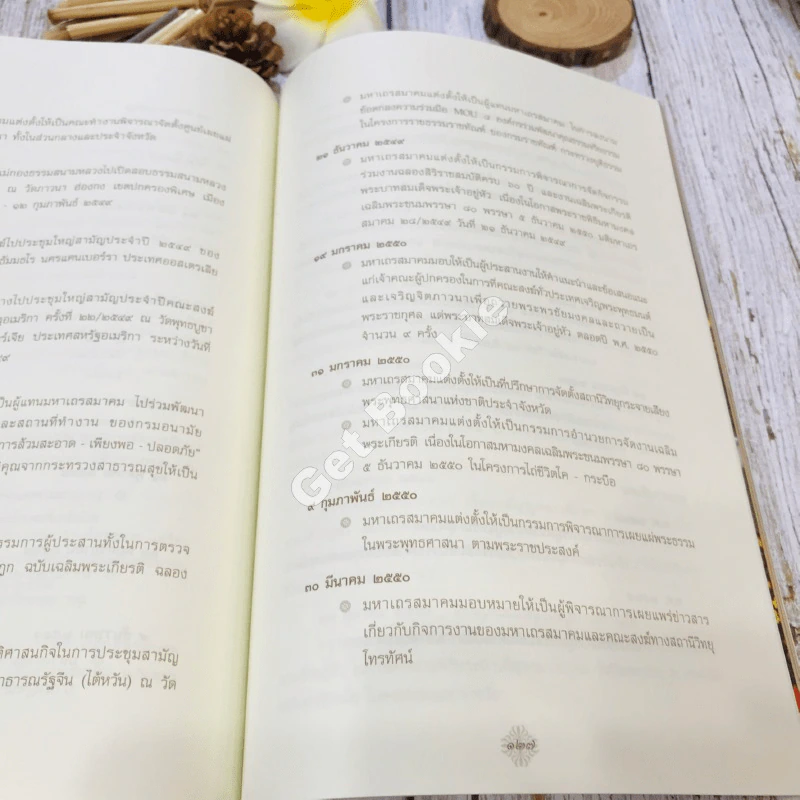 มแต่งตั้งให้เป็นคณะทำงานพิจารณาจัดตั้งศูนย์เผยแผ่
า ทั้งในส่วนกลางและประจำจังหวัด
ม่กองธรรมสนามหลวงไปเปิดสอบธรรมสนามหลวง
ณ วัดภาวนา ฮ่องกง เขตปกครองพิเศษ เมือง
- ๑๒ กุมภาพันธ์ ๒๕๔๙
ไปประชุมใหญ่สามัญประจำปี ๒๕๔๙ ของ
ธัมมธโร นครแคนเบอร์รา ประเทศออสเตรเลีย
างไปประชุมใหญ่สามัญประจำปีคณะสงฆ์
อเมริกา ครั้งที่ ๒๒/๒๕๔๙ ณ วัดพุทธบูชา
ร์เจีย ประเทศสหรัฐอเมริกา ระหว่างวันที่
๙
ป็นผู้แทนมหาเถรสมาคม ไปร่วมพัฒนา
ละสถานที่ทำงาน ของกรมอนามัย
การส้วมสะอาด - เพียงพอ - ปลอดภัย"
คุณจากกระทรวงสาธารณสุขให้เป็น
รมการผู้ประสานทั้งในการตรวจ
ฎก ฉบับเฉลิมพระเกียรติ ฉลอง
ติศาสนกิจในการประชุมสามัญ
าธารณรัฐจีน (ไต้หวัน) ณ วัด
มหาเถรสมาคมแต่งตั้งให้เป็นผู้แทนมหาเถรสมาคม ในการลงนาม
ข้อตกลงความร่วมมือ MOU ๘ องค์กรร่วมพัฒนาคุณธรรมจริยธรรม
ในโครงการราชธรรมราชทัณฑ์ ของกรมราชทัณฑ์ กระทรวงยุติธรรม
๒๑ ธันวาคม ๒๕๔๙
มหาเถรสมาคมแต่งตั้งให้เป็นกรรมการพิจารณาการจัดกิจกรรม
ร่วมงานฉลองสิริราชสมบัติครบ ๖๐ ปี และงานเฉลิมพระเกียรติ
พระบาทสมเด็จพระเจ้าอยู่หัว เนื่องในโอกาสพระราชพิธีมหามงคล
เฉลิมพระชนมพรรษา ๘๐ พรรษา ๕ ธันวาคม ๒๕๕๐ มติมหาเถร
สมาคม ๒๘/๒๕๔๙ วันที่ ๒๑ ธันวาคม ๒๕๔๙
๑๙ มกราคม ๒๕๕๐
มหาเถรสมาคมมอบให้เป็นผู้ประสานงานให้คำแนะนำและข้อเสนอแนะ
แก่เจ้าคณะผู้ปกครองในการที่คณะสงฆ์ทั่วประเทศเจริญพระพุทธมนต์
และเจริญจิตภาวนาเพื่อถวายพระพรชัยมงคลและถวายเป็น
พระราชกุศล แด่พระบาทสมเด็จพระเจ้าอยู่หัว ตลอดปี พ.ศ. ๒๕๕๐
จำนวน ๙ ครั้ง
๓๑ มกราคม ๒๕๕๐
มหาเถรสมาคมแต่งตั้งให้เป็นที่ปรึกษาการจัดตั้งสถานีวิทยุกระจายเสียง
พระพุทธศาสนาแห่งชาติประจำจังหวัด
มหาเถรสมาคมแต่งตั้งให้เป็นกรรมการอำนวยการจัดงานเฉลิม
พระเกียรติ เนื่องในโอกาสมหามงคลเฉลิมพระชนมพรรษา ๘๐ พรรษา
๕ ธันวาคม ๒๕๕๐ ในโครงการไถ่ชีวิตโค - กระบือ
๙ กุมภาพันธ์ ๒๕๕๐
มหาเถรสมาคมแต่งตั้งให้เป็นกรรมการพิจารณาการเผยแผ่พระธรรม
ในพระพุทธศาสนา ตามพระราชประสงค์
๓๐ มีนาคม ๒๕๕๐
มหาเถรสมาคมมอบหมายให้เป็นผู้พิจารณาการเผยแพร่ข่าวสาร
เกี่ยวกับกิจการงานของมหาเถรสมาคมและคณะสงฆ์ทางสถานีวิทยุ
โทรทัศน์
๑๒๗
Get Bookie